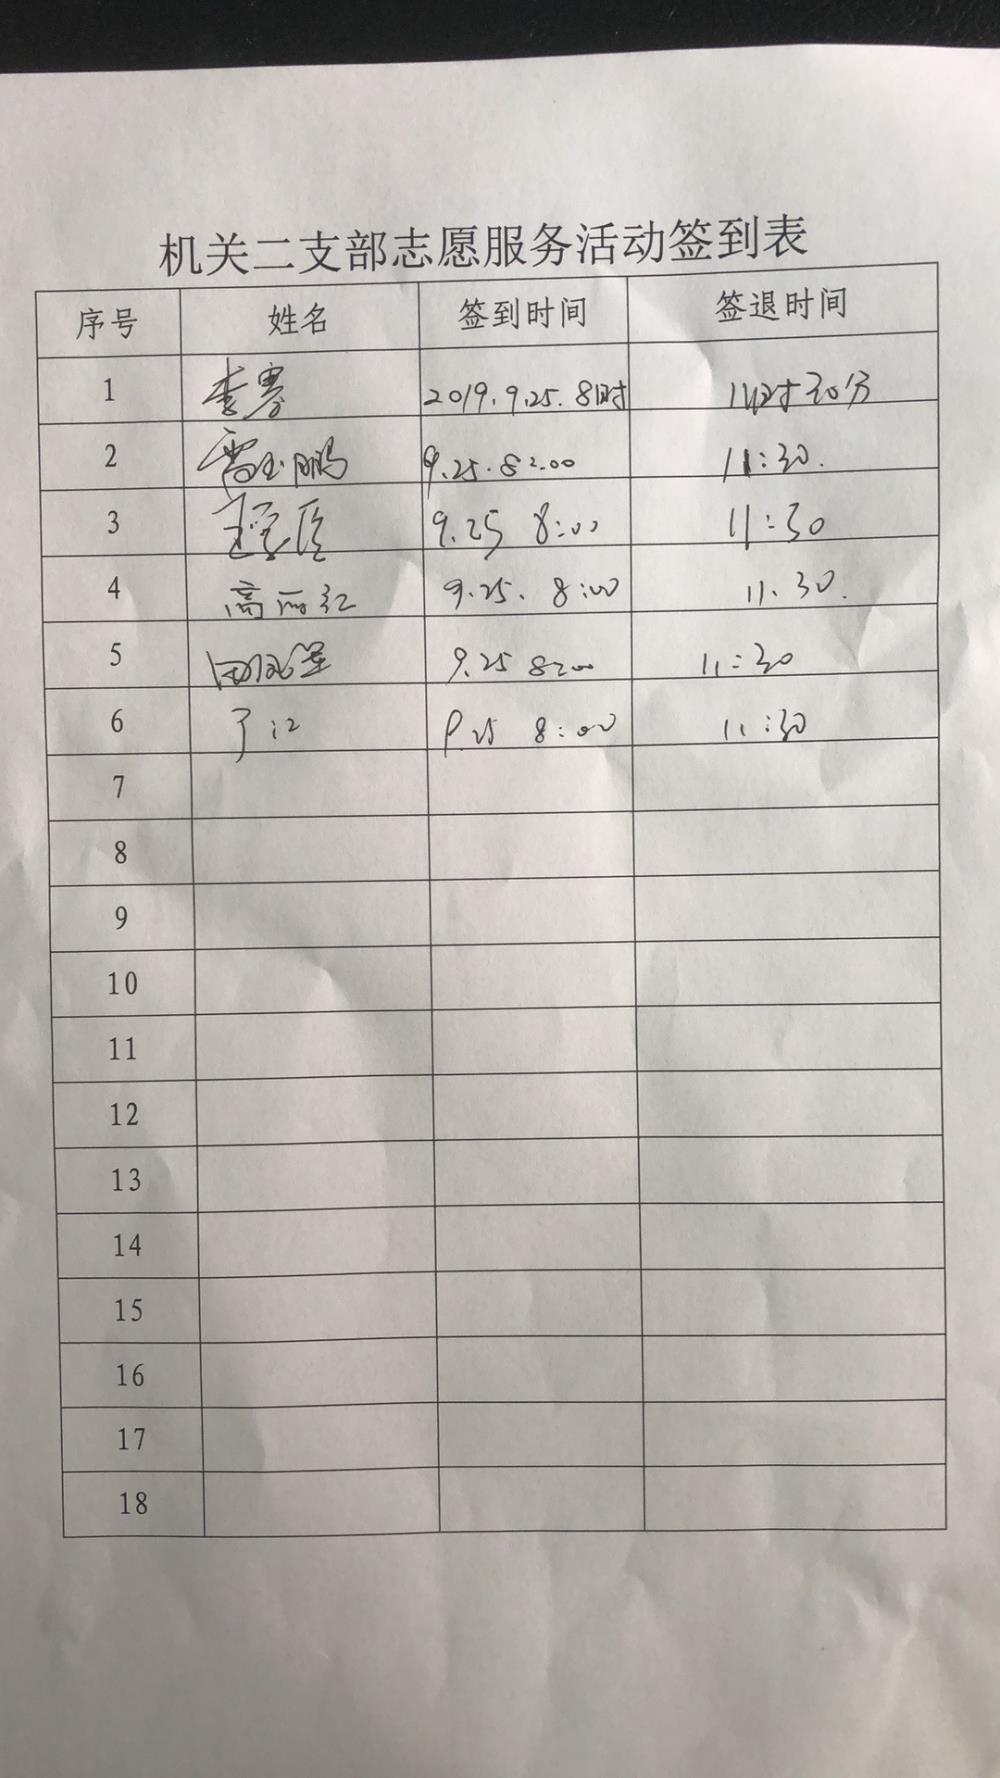 机关二支部志愿服务活动签到表
序号 姓名 签到时间 签退时间
1 李骞 2019.9.25.8时 11时30分
2 9.25.8:00 11:30.
3 9.25 8:00 11:30
4 高丽红 9.25. 8:00 11.30.
5 9.25 8:00 11:30
6 丁江 9.25 8:00 11:30
7
8
9
10
11
12
13
14
15
16
17
18